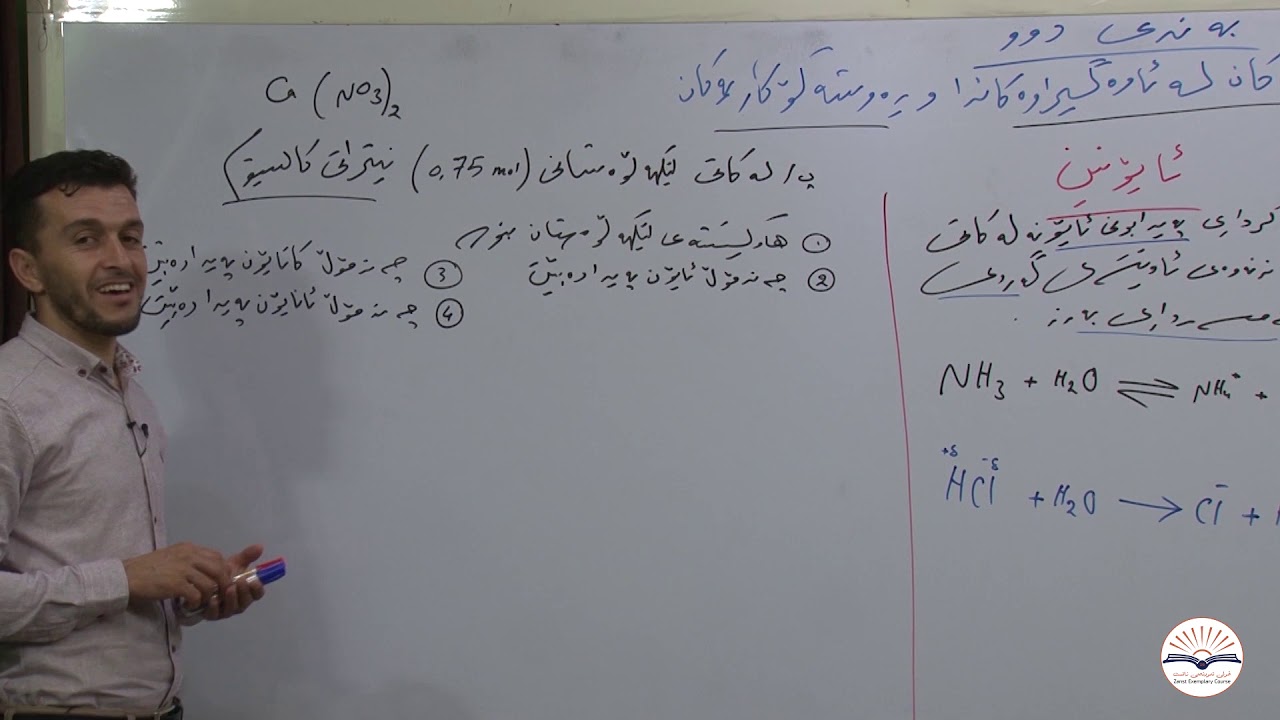 بەندی دوو
کان لە ئاوەگیراوەکاندا و ڕەوشتە کۆکارییەکان
Ca (NO3)2
پ/ لە کاتی لێکهەڵوەشانی (0,75 mol) نیتراتی کالسیۆم
① هاوکێشەی لێکهەڵوەشان بنوسە
② چەند مۆڵ ئایۆن پەیدا دەبێت
③ چەند مۆڵ کاتایۆن پەیدا دەبێت
④ چەند مۆڵ ئانایۆن پەیدا دەبێت
ئایۆنین
کرداری پەیدابوونی ئایۆنە لە کاتی
ئاوێتەی گەردی
بەرز .
NH3 + H2O ⇌ NH4+ +
+δ -δ
HCl + H2O → Cl- + H
Zanist Exemplary Course